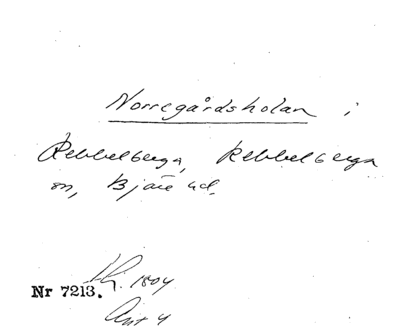 Norregårdsholan i
Rebbelberga, Rebbelberga
sn, Bjäre hd.
Lskj. 1804
Nr 7213.
Akt 4